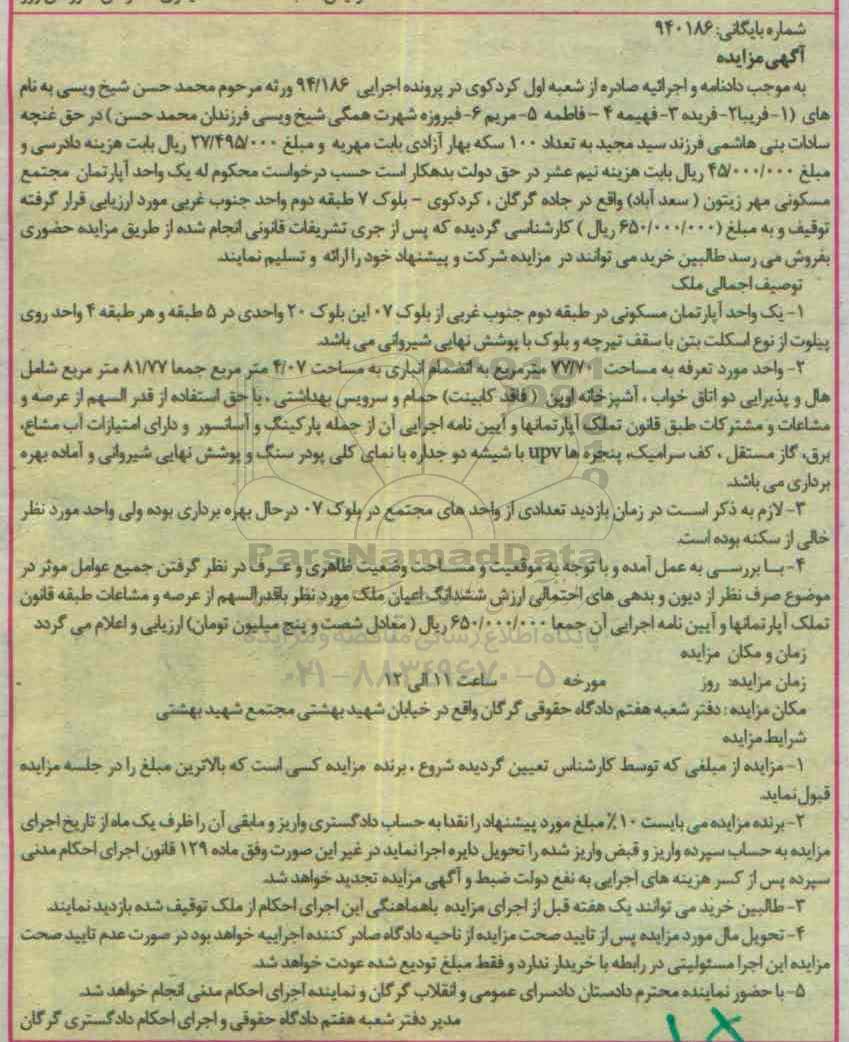 شماره بایگانی: ۹۴۰۱۸۶
آگهی مزایده
به موجب دادنامه و اجرائیه صادره از شعبه اول کردکوی در پرونده اجرایی ۹۴/۱۸۶ ورثه مرحوم محمد حسن شیخ ویسی به نام
های (۱-فریبا۲-فریده ۳-فهیمه ۴-فاطمه ۵-مریم ۶-فیروزه شهرت همگی شیخ ویسی فرزندان محمد حسن) در حق غنچه
سادات بنی هاشمی فرزند سید مجید به تعداد ۱۰۰ سکه بهار آزادی بابت مهریه و مبلغ ۲۷/۴۹۵/۰۰۰ ریال بابت هزینه دادرسی و
مبلغ ۴۵/۰۰۰/۰۰۰ ریال بابت هزینه نیم عشر در حق دولت بدهکار است حسب درخواست محکوم له یک واحد آپارتمان مجتمع
مسکونی مهر زیتون (سعد آباد) واقع در جاده گرگان ، کردکوی - بلوک ۷ طبقه دوم واحد جنوب غربی مورد ارزیابی قرار گرفته
توقیف و به مبلغ (۶۵۰/۰۰۰/۰۰۰ ریال) کارشناسی گردیده که پس از جری تشریفات قانونی انجام شده از طریق مزایده حضوری
بفروش می رسد طالبین خرید می توانند در مزایده شرکت و پیشنهاد خود را ارائه و تسلیم نمایند.
توصیف اجمالی ملک
۱-یک واحد آپارتمان مسکونی در طبقه دوم جنوب غربی از بلوک ۰۷ این بلوک ۲۰ واحدی در ۵ طبقه و هر طبقه ۴ واحد روی
پیلوت از نوع اسکلت بتن با سقف تیرچه و بلوک با پوشش نهایی شیروانی می باشد.
۲- واحد مورد تعرفه به مساحت ۷۷/۷۰ مترمربع به انضمام انباری به مساحت ۴/۰۷ متر مربع جمعا ۸۱/۷۷ متر مربع شامل
هال و پذیرایی دو اتاق خواب ، آشپزخانه اوپن (فاقد کابینت) حمام و سرویس بهداشتی ، با حق استفاده از قدر السهم از عرصه و
مشاعات و مشترکات طبق قانون تملک آپارتمانها و آیین نامه اجرایی آن از جمله پارکینگ و آسانسور و دارای امتیازات آب مشاع،
برق، گاز مستقل ، کف سرامیک، پنجره ها upv با شیشه دو جداره با نمای کلی پودر سنگ و پوشش نهایی شیروانی و آماده بهره
برداری می باشد.
۳- لازم به ذکر است در زمان بازدید تعدادی از واحد های مجتمع در بلوک ۰۷ درحال بهره برداری بوده ولی واحد مورد نظر
خالی از سکنه بوده است.
۴- با بررسی به عمل آمده و با توجه به موقعیت و مساحت وضعیت ظاهری و عرف در نظر گرفتن جمیع عوامل موثر در
موضوع صرف نظر از دیون و بدهی های احتمالی ارزش ششدانگ اعیان ملک مورد نظر باقدرالسهم از عرصه و مشاعات طبقه قانون
تملک آپارتمانها و آیین نامه اجرایی آن جمعا ۶۵۰/۰۰۰/۰۰۰ ریال (معادل شصت و پنج میلیون تومان) ارزیابی و اعلام می گردد
زمان و مکان مزایده
زمان مزایده: روز مورخه ساعت ۱۱ الی ۱۲
مکان مزایده : دفتر شعبه هفتم دادگاه حقوقی گرگان واقع در خیابان شهید بهشتی مجتمع شهید بهشتی
شرایط مزایده
۱-مزایده از مبلغی که توسط کارشناس تعیین گردیده شروع ، برنده مزایده کسی است که بالاترین مبلغ را در جلسه مزایده
قبول نماید.
۲-برنده مزایده می بایست ۱۰٪ مبلغ مورد پیشنهاد را نقدا به حساب دادگستری واریز و مابقی آن را ظرف یک ماه از تاریخ اجرای
مزایده به حساب سپرده واریز و قبض واریز شده را تحویل دایره اجرا نماید در غیر این صورت وفق ماده ۱۲۹ قانون اجرای احکام مدنی
سپرده پس از کسر هزینه های اجرایی به نفع دولت ضبط و آگهی مزایده تجدید خواهد شد.
۳-طالبین خرید می توانند یک هفته قبل از اجرای مزایده باهماهنگی این اجرای احکام از ملک توقیف شده بازدید نمایند.
۴-تحویل مال مورد مزایده پس از تایید صحت مزایده از ناحیه دادگاه صادر کننده اجراییه خواهد بود در صورت عدم تایید صحت
مزایده این اجرا مسئولیتی در رابطه با خریدار ندارد و فقط مبلغ تودیع شده عودت خواهد شد.
۵-با حضور نماینده محترم دادستان دادسرای عمومی و انقلاب گرگان و نماینده اجرای احکام مدنی انجام خواهد شد.
مدیر دفتر شعبه هفتم دادگاه حقوقی و اجرای احکام دادگستری گرگان
ParsNamadData
پایگاه اطلاع رسانی مناقصه و مزایده
۰۲۱-۸۸۳۴۹۶۷۰-۵